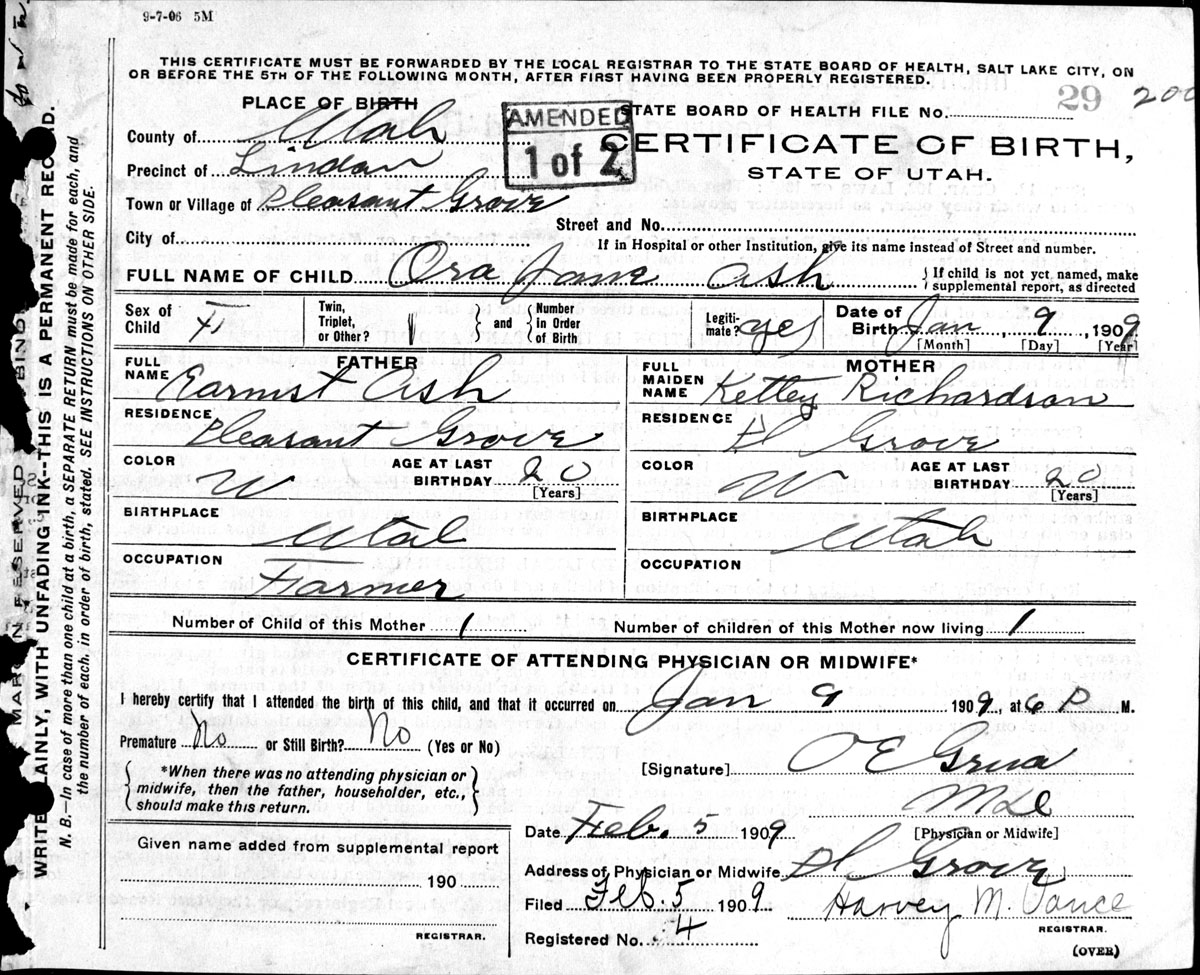 9-7-06 5M
THIS CERTIFICATE MUST BE FORWARDED BY THE LOCAL REGISTRAR TO THE STATE BOARD OF HEALTH, SALT LAKE CITY, ON
OR BEFORE THE 5TH OF THE FOLLOWING MONTH, AFTER FIRST HAVING BEEN PROPERLY REGISTERED.
29 200
PLACE OF BIRTH
STATE BOARD OF HEALTH FILE No.
AMENDED
1 of 2
County of Utah
CERTIFICATE OF BIRTH,
Precinct of Lindon
STATE OF UTAH.
Town or Village of Pleasant Grove
Street and No.
City of
If in Hospital or other Institution, give its name instead of Street and number.
FULL NAME OF CHILD Ora Jane Ash } If child is not yet named, make
supplemental report, as directed
Sex of Child F
Twin, Triplet, or Other? } and { Number in Order of Birth
Legitimate? yes
Date of Birth Jan 9, 1909
[Month] [Day] [Year]
FATHER
FULL NAME Earnist Ash
RESIDENCE
Pleasant Grove
COLOR W AGE AT LAST BIRTHDAY 20
[Years]
BIRTHPLACE
Utah
OCCUPATION
Farmer
MOTHER
FULL MAIDEN NAME Kettey Richardson
RESIDENCE
Pl Grove
COLOR W AGE AT LAST BIRTHDAY 20
[Years]
BIRTHPLACE
Utah
OCCUPATION
Number of Child of this Mother 1 Number of children of this Mother now living 1
CERTIFICATE OF ATTENDING PHYSICIAN OR MIDWIFE*
I hereby certify that I attended the birth of this child, and that it occurred on Jan 9 1909, at 6 P M.
Premature No or Still Birth? No (Yes or No)
{ *When there was no attending physician or
midwife, then the father, householder, etc.,
should make this return. }
[Signature] O E Grua
M D
[Physician or Midwife]
Date Feb. 5 1909
Given name added from supplemental report
190
REGISTRAR.
Address of Physician or Midwife Pl Grove
Filed Feb. 5 1909 Harvey M. Vance
REGISTRAR.
Registered No. 4
(OVER)
WRITE PLAINLY, WITH UNFADING INK--THIS IS A PERMANENT RECORD.
N. B.—In case of more than one child at a birth, a SEPARATE RETURN must be made for each, and
the number of each, in order of birth, stated. SEE INSTRUCTIONS ON OTHER SIDE.